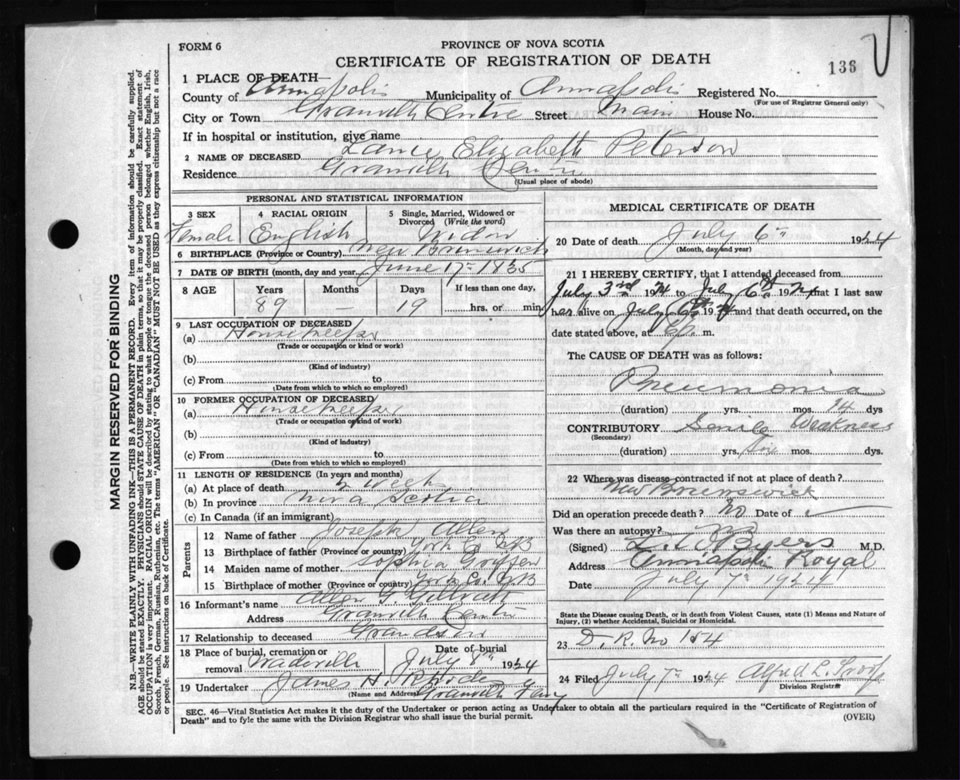 FORM 6
PROVINCE OF NOVA SCOTIA
CERTIFICATE OF REGISTRATION OF DEATH
136
1 PLACE OF DEATH—
County of Annapolis Municipality of Annapolis Registered No.
(For use of Registrar General only)
City or Town Granville Centre Street Main House No.
If in hospital or institution, give name
2 NAME OF DECEASED Elizabeth Peterson
Residence Granville Centre
(Usual place of abode)
PERSONAL AND STATISTICAL INFORMATION
3 SEX Female
4 RACIAL ORIGIN English
5 Single, Married, Widowed or Divorced (Write the word) Widow
6 BIRTHPLACE (Province or Country) New Brunswick
7 DATE OF BIRTH (month, day and year) June 17th 1835
8 AGE Years Months Days If less than one day,
89 — 19 hrs. or min
9 LAST OCCUPATION OF DECEASED
(a) Housekeeper
(Trade or occupation or kind or work)
(b)
(Kind of industry)
(c) From to
(Date from which to which so employed)
10 FORMER OCCUPATION OF DECEASED
(a) Housekeeper
(Trade or occupation or kind of work)
(b)
(Kind of industry)
(c) From to
(Date from which to which so employed)
11 LENGTH OF RESIDENCE (In years and months)
(a) At place of death Week
(b) In province Nova Scotia
(c) In Canada (if an immigrant)
Parents
12 Name of father Joseph Allen
13 Birthplace of father (Province or country) York Co. NB
14 Maiden name of mother Sophia
15 Birthplace of mother (Province or country) York Co. NB
16 Informant's name Allen G. Gilliatt
Address Granville Centre
17 Relationship to deceased Grandson
18 Place of burial, cremation or removal Wadeville
Date of burial July 8th 1924
19 Undertaker James H.
(Name and Address) Granville Ferry
MEDICAL CERTIFICATE OF DEATH
20 Date of death July 6th 1924
(Month, day and year)
21 I HEREBY CERTIFY, that I attended deceased from
July 3rd 1924 to July 6th 1924 that I last saw
her alive on July 6th 1924 and that death occurred, on the
date stated above, at m.
The CAUSE OF DEATH was as follows:
Pneumonia
(duration) yrs. mos. 14 dys
CONTRIBUTORY Senile Weakness
(Secondary)
(duration) yrs. mos. dys.
22 Where was disease contracted if not at place of death?
New Brunswick
Did an operation precede death? No Date of
Was there an autopsy? no
(Signed) Byers M.D.
Address Annapolis Royal
Date July 7th 1924
State the Disease causing Death, or in death from Violent Causes, state (1) Means and Nature of Injury, (2) whether Accidental, Suicidal or Homicidal.
23 D. R. No 184
24 Filed July 7th 1924 Alfred L. Troop
Division Registrar
SEC. 46—Vital Statistics Act makes it the duty of the Undertaker or person acting as Undertaker to obtain all the particulars required in the "Certificate of Registration of
Death" and to fyle the same with the Division Registrar who shall issue the burial permit.
(OVER)
MARGIN RESERVED FOR BINDING
N.B.—WRITE PLAINLY WITH UNFADING INK—THIS IS A PERMANENT RECORD. Every item of information should be carefully supplied.
AGE should be stated EXACTLY. PHYSICIANS should STATE CAUSE OF DEATH in plain terms, so that it may be properly classified. Exact statement of
OCCUPATION is very important. RACIAL ORIGIN will be described by stating to what people or tongue the deceased person belonged whether English, Irish,
Scotch, French, German, Russian, Ruthenian, etc. The terms "AMERICAN" or "CANADIAN" MUST NOT BE USED as they express citizenship but not a race
or people. See instructions on back of Certificate.